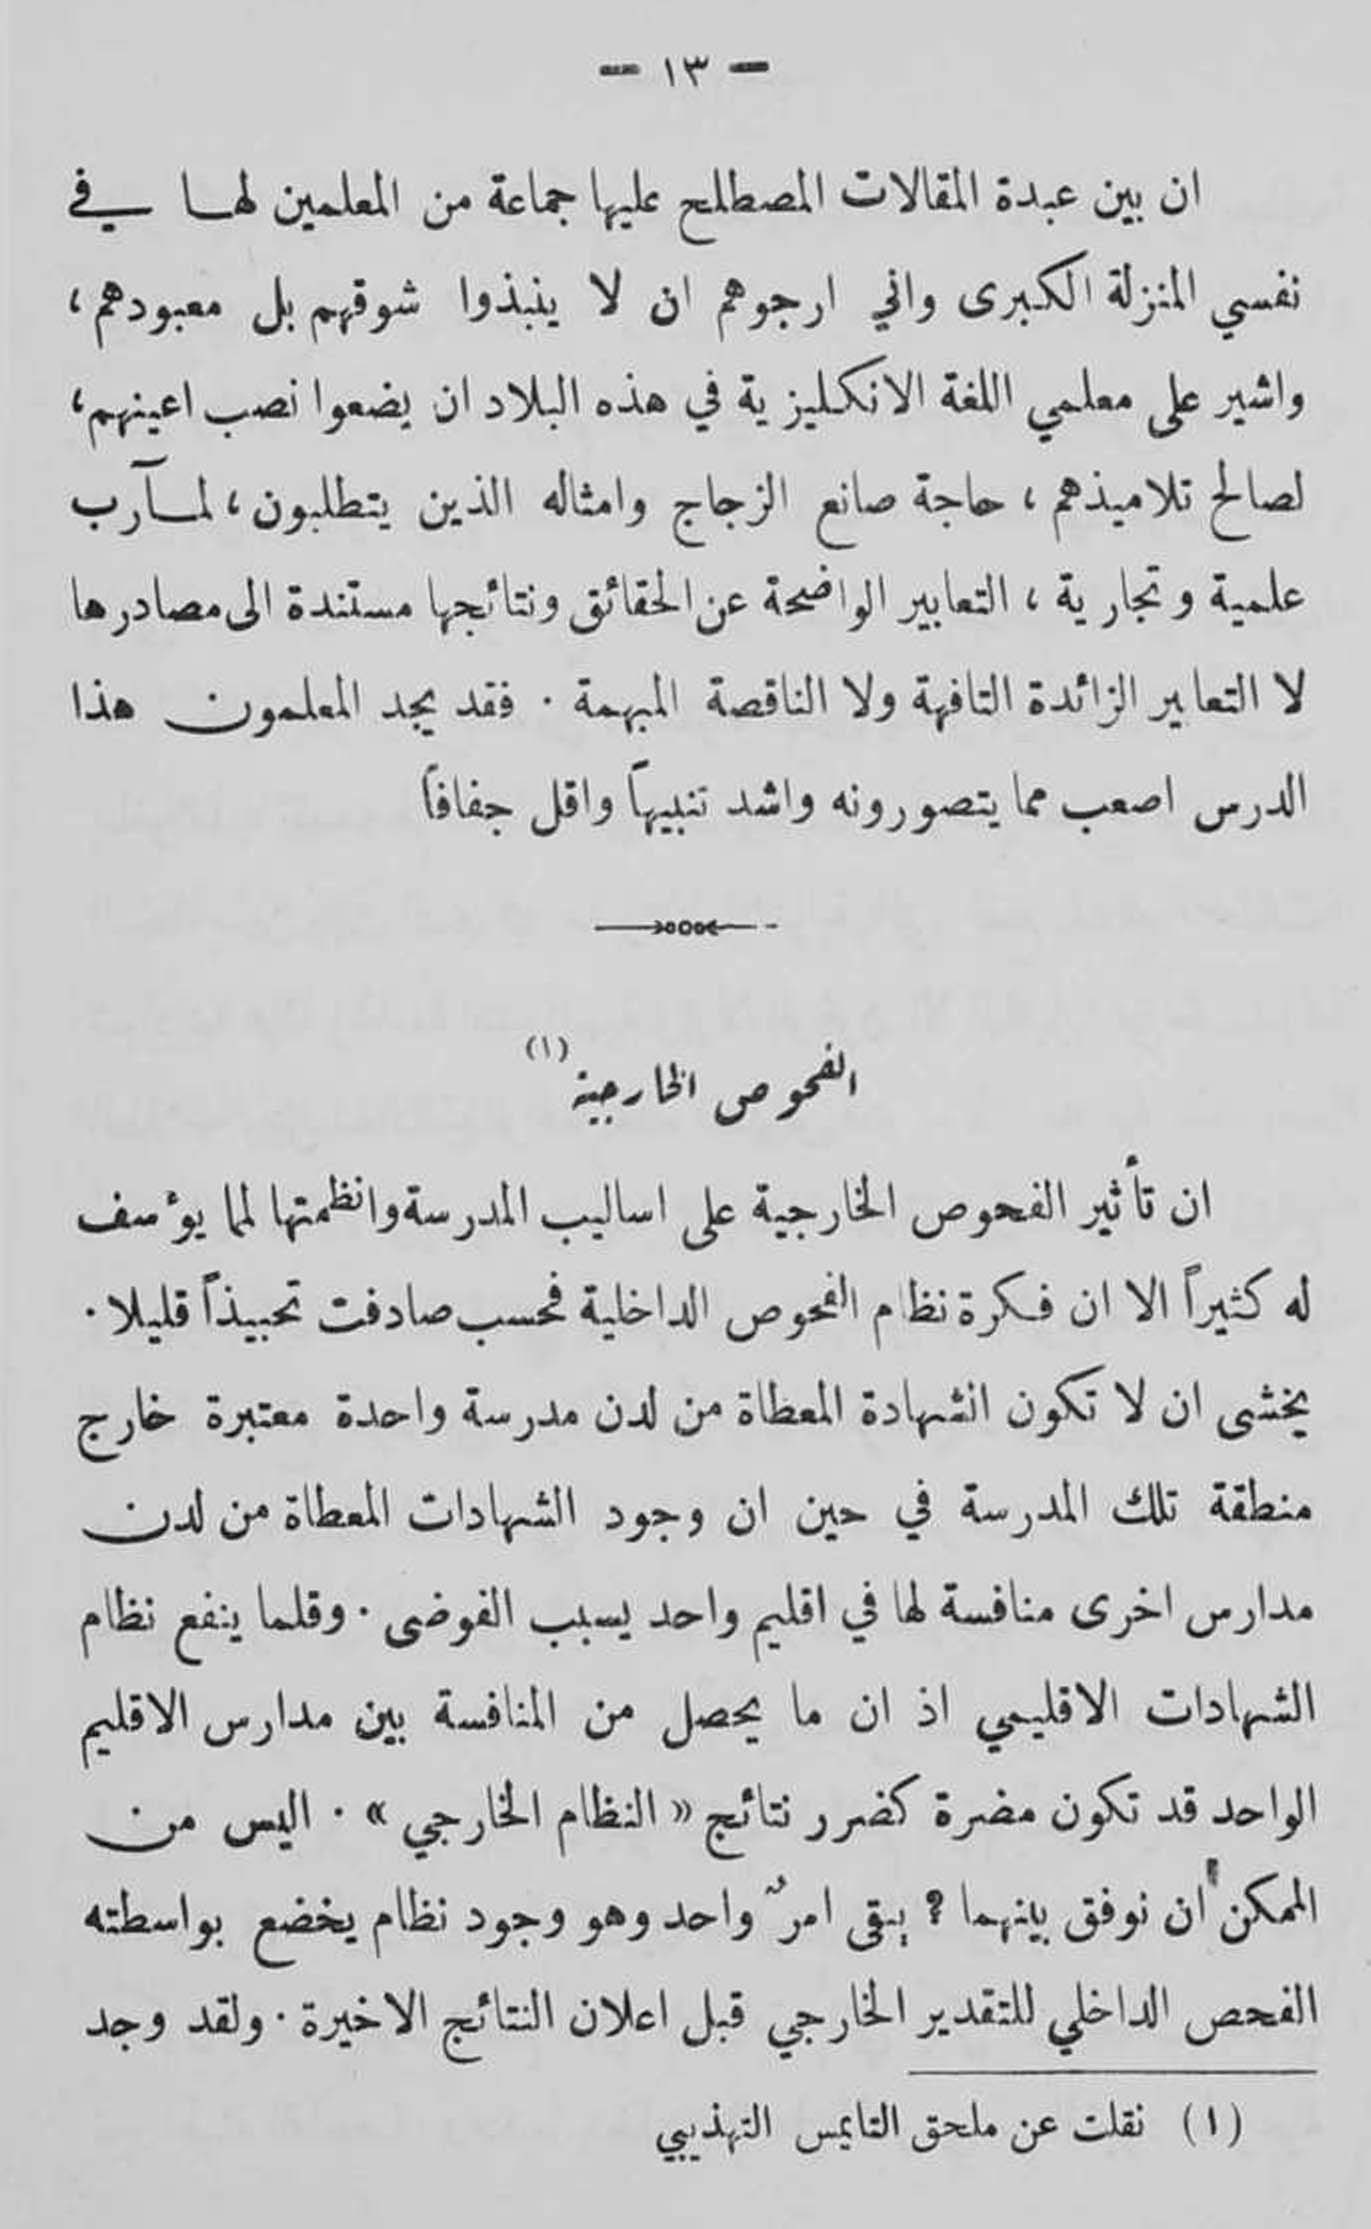 — ١٣ —
ان بين عبدة المقالات المصطلح عليها جماعة من المعلمين لها في
نفسي المنزلة الكبرى واني ارجوهم ان لا ينبذوا شوقهم بل معبودهم ،
واشير على معلمي اللغة الانكليزية في هذه البلاد ان يضعوا نصب اعينهم ،
لصالح تلاميذهم ، حاجة صانع الزجاج وامثاله الذين يتطلبون ، لمآرب
علمية وتجارية ، التعابير الواضحة عن الحقائق ونتائجها مستندة الى مصادرها
لا التعابير الزائدة التافهة ولا الناقصة المبهمة . فقد يجد المعلمون هذا
الدرس اصعب مما يتصورونه واشد تنبيهاً واقل جفافاً
الفحوص الخارجية (١)
ان تأثير الفحوص الخارجية على اساليب المدرسة وانظمتها لما يؤسف
له كثيراً الا ان فكرة نظام الفحوص الداخلية فحسب صادفت تحبيذاً قليلا .
يخشى ان لا تكون الشهادة المعطاة من لدن مدرسة واحدة معتبرة خارج
منطقة تلك المدرسة في حين ان وجود الشهادات المعطاة من لدن
مدارس اخرى منافسة لها في اقليم واحد يسبب الفوضى . وقلما ينفع نظام
الشهادات الاقليمي اذ ان ما يحصل من المنافسة بين مدارس الاقليم
الواحد قد تكون مضرة كضرر نتائج « النظام الخارجي » . اليس من
الممكن ان نوفق بينهما ؟ يبقى امرٌ واحد وهو وجود نظام يخضع بواسطته
الفحص الداخلي للتقدير الخارجي قبل اعلان النتائج الاخيرة . ولقد وجد
(١) نقلت عن ملحق التايمس التهذيبي